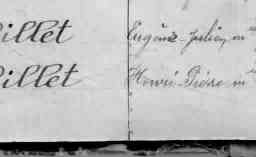 illet Eugène Julien, m
illet Henri Pière m